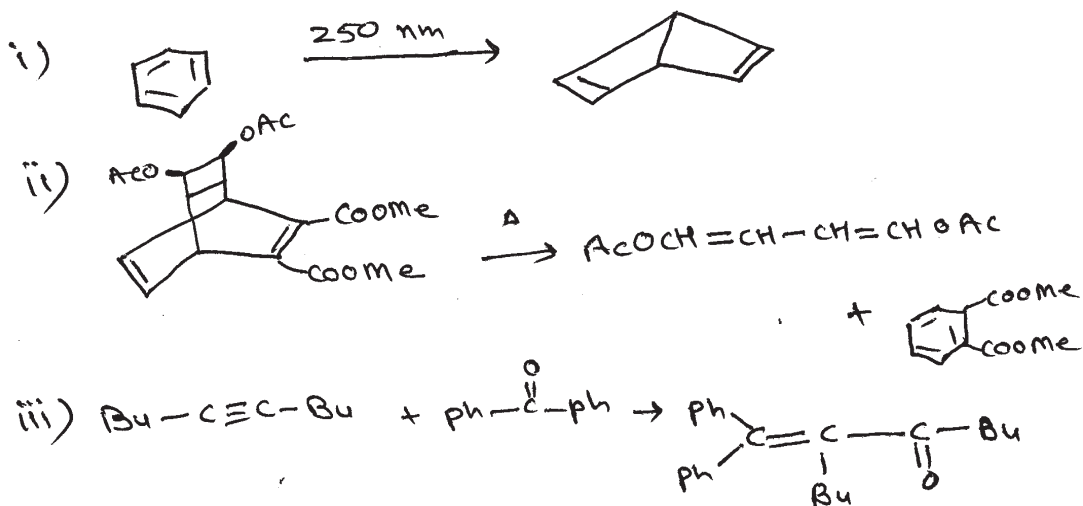 i) 250 nm
ii) AcO OAc
COOMe
COOMe
Δ
AcOCH=CH-CH=CHOAc
+
COOMe
COOMe
iii) Bu-C≡C-Bu + Ph-C-Ph → Ph C=C-C-Bu
O
Ph
Bu
O